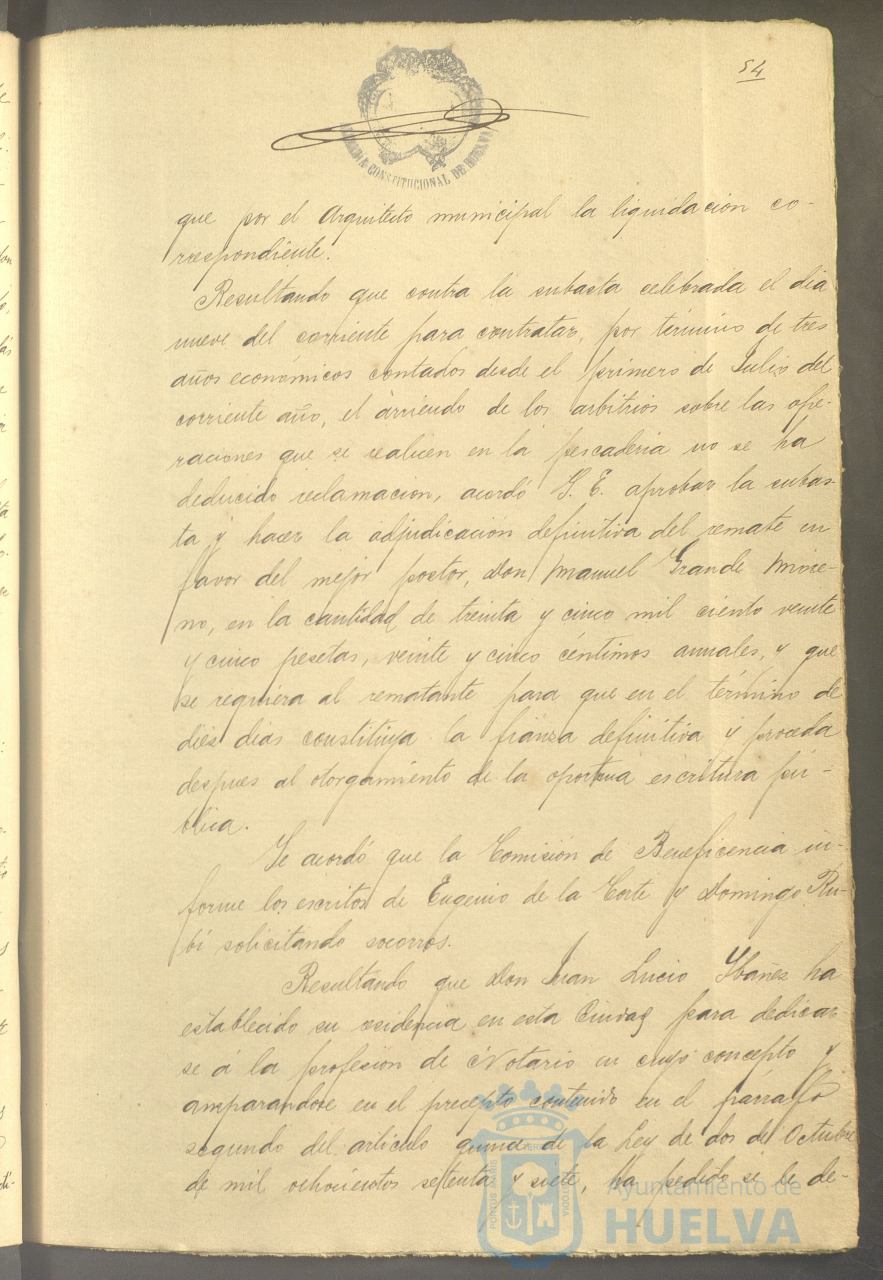 54
ALCALDIA CONSTITUCIONAL DE HUELVA
que por el Arquitecto municipal la liquidación co-
rrespondiente.
Resultando que contra la subasta celebrada el dia
nueve del corriente para contratar, por término de tres
años económicos contados desde el primero de Julio del
corriente año, el arriendo de los arbitrios sobre las ope-
raciones que se realicen en la pescaderia no se ha
deducido reclamacion, acordó S. E. aprobar la subas-
ta y hacer la adjudicacion definitiva del remate en
favor del mejor postor, Don Manuel Grande More-
no, en la cantidad de treinta y cinco mil ciento veinte
y cinco pesetas, veinte y cinco céntimos anuales, y que
se requiera al rematante para que en el término de
diés dias constituya la fianza definitiva y proceda
despues al otorgamiento de la oportuna escritura pú-
blica.
Se acordó que la Comisión de Beneficencia in-
forme los escritos de Eugenio de la Corte y Domingo Ru-
bí solicitando socorros.
Resultando que Don Juan Lucio Ybañez ha
establecido su residencia en esta Ciudad para dedicar-
se á la profesion de Notario en cuyo concepto y
amparandose en el precepto contenido en el párrafo
segundo del articulo quince de la Ley de dos de Octubre
de mil ochocientos setenta y siete, ha pedido se le de-
PORTUS MARIS ET TERRAE CUSTODIA
Ayuntamiento de
HUELVA